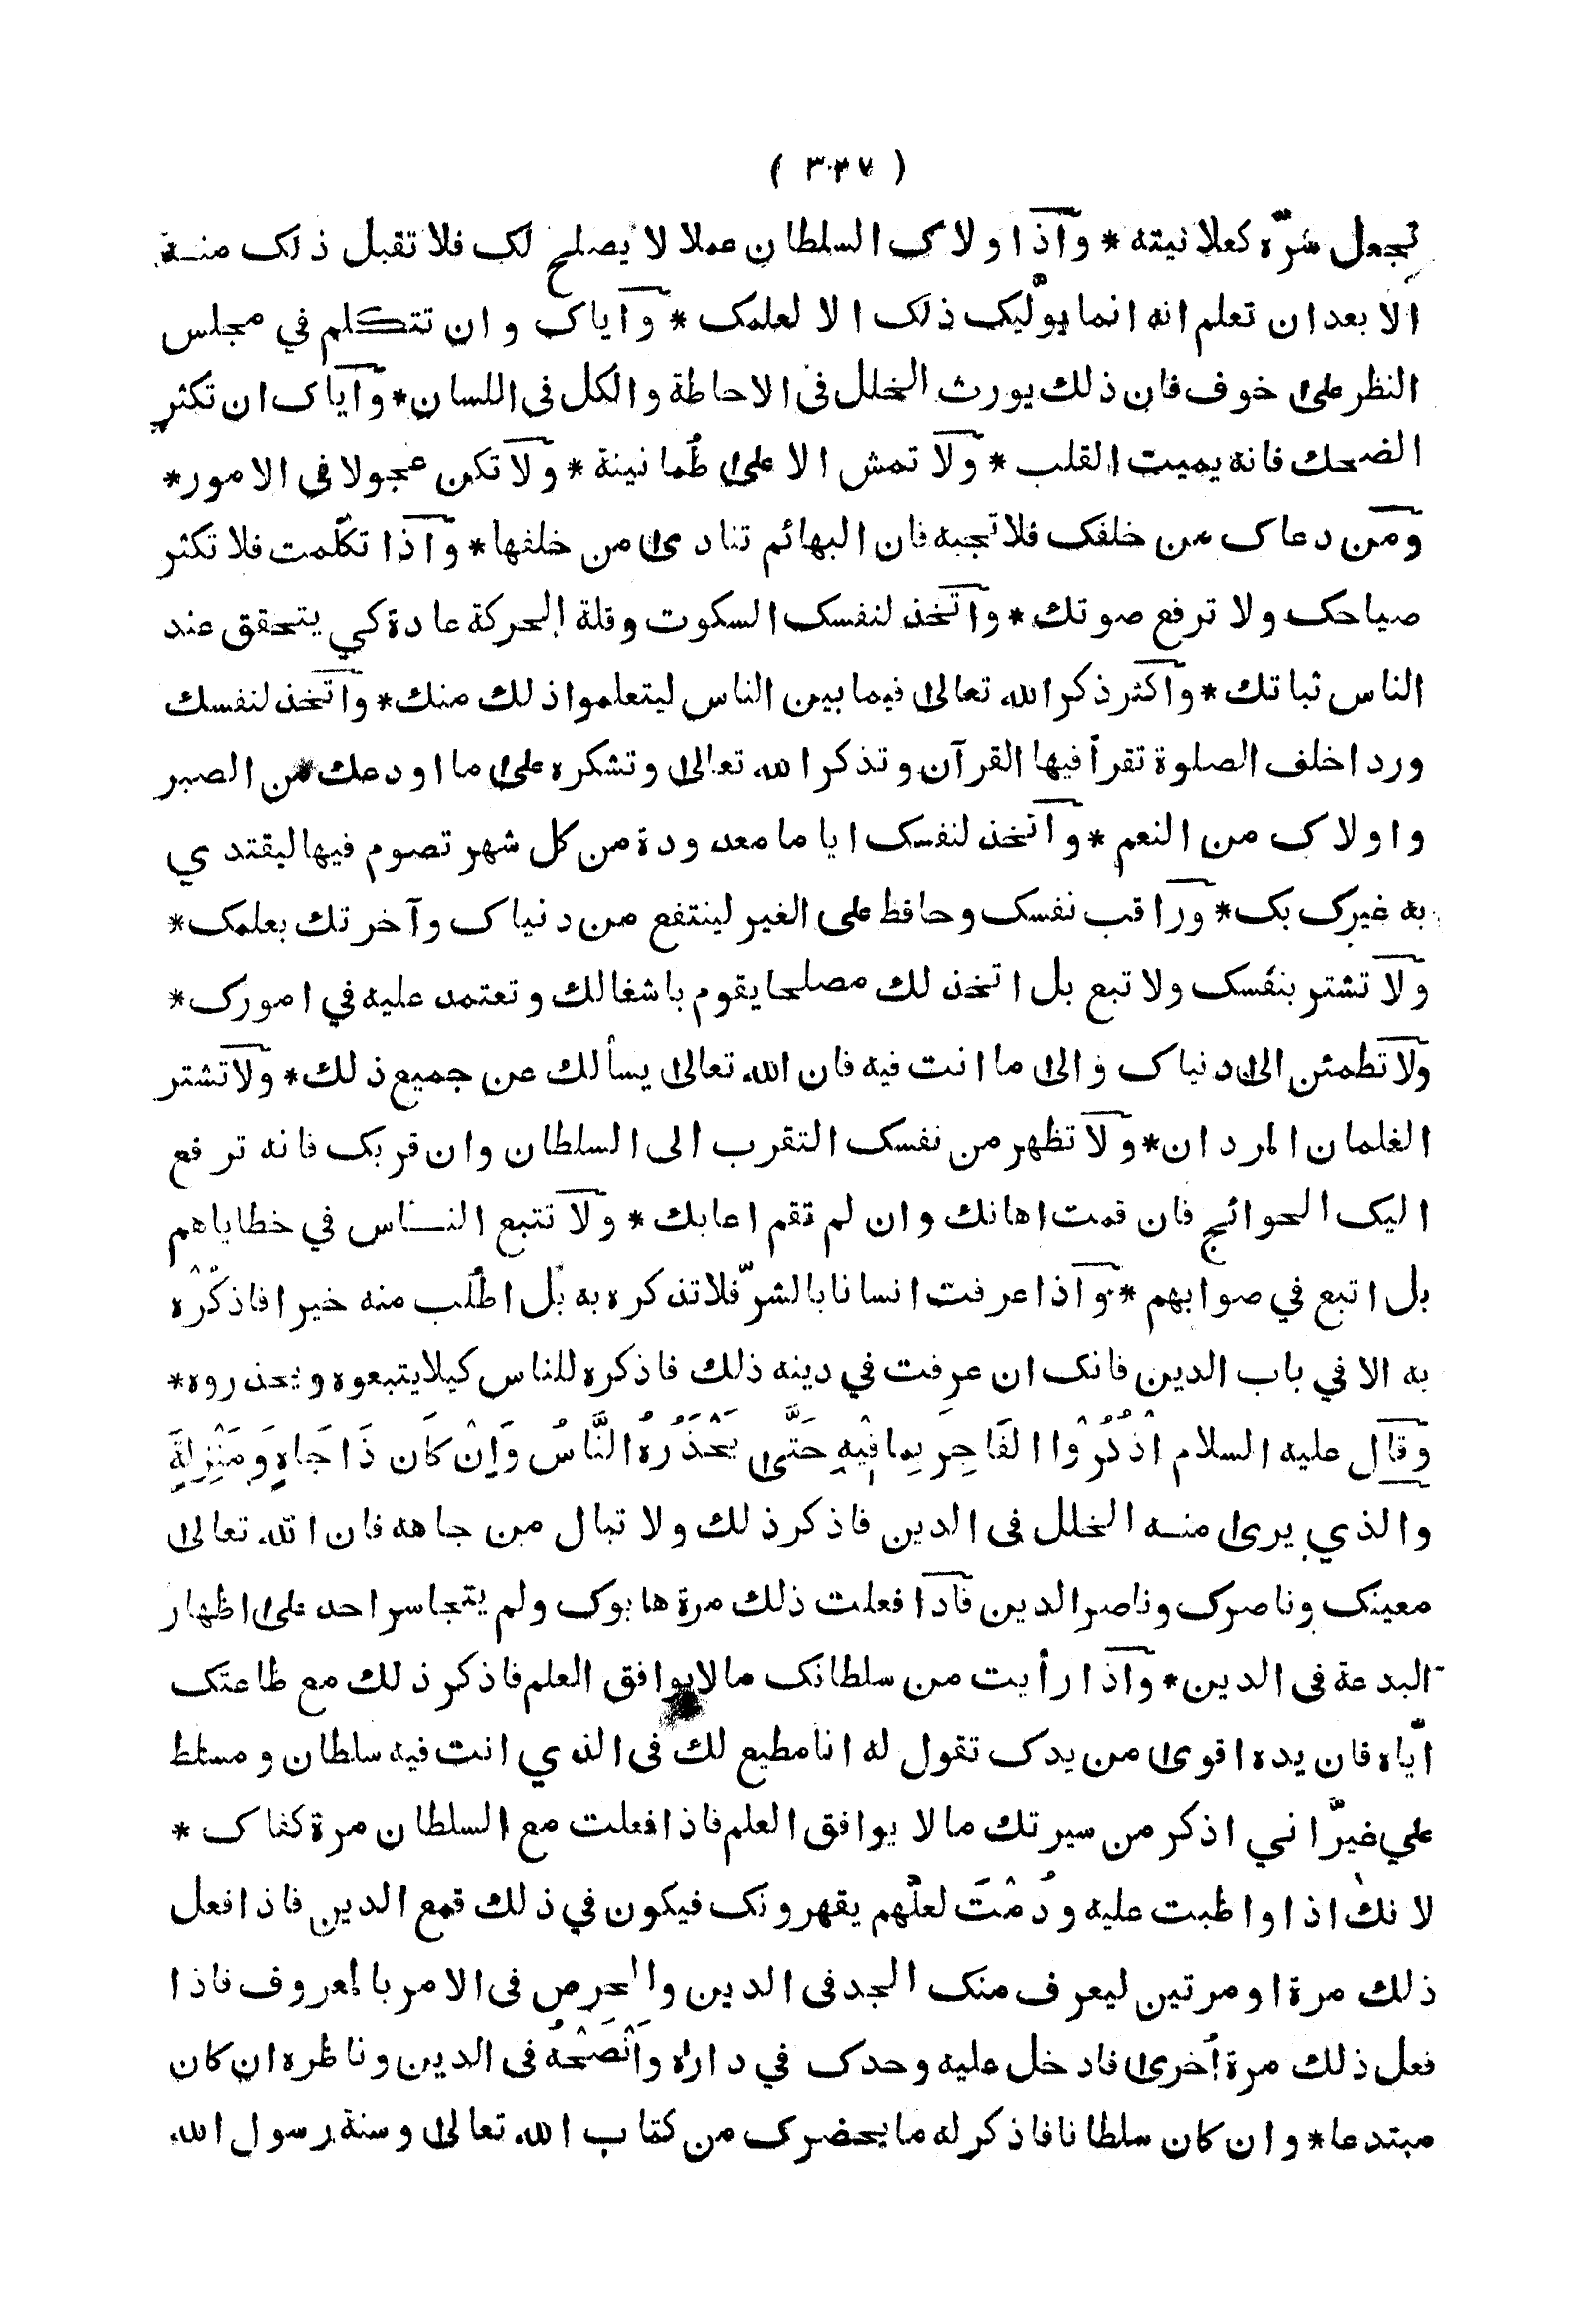 ( ٣٠٢٧ )
تجعل سرّه كعلانيته * واذا ولاك السلطان عملا لا يصلح لك فلا تقبل ذلك منه
الا بعد ان تعلم انه انما يولّيك ذلك الا لعلمك * واياك وان تتكلم في مجلس
النظر على خوف فان ذلك يورث الخلل فى الاحاطة والكل فى اللسان * واياك ان تكثر
الضحك فانه يميت القلب * ولا تمش الا على طُمانينة * ولا تكن عجولا في الامور *
ومن دعاك من خلفك فلا تجبه فان البهائم تنادى من خلفها * واذا تكلّمت فلا تكثر
صياحك ولا ترفع صوتك * واتخذ لنفسك السكوت وقلة الحركة عادة كي يتحقق عند
الناس ثباتك * واكثر ذكر الله تعالى فيما بين الناس ليتعلموا ذلك منك * واتخذ لنفسك
وردا خلف الصلوة تقرأ فيها القرآن وتذكر الله تعالى وتشكره على ما اودعك من الصبر
واولاك من النعم * واتخذ لنفسك اياما معدودة من كل شهر تصوم فيها ليقتدي
به غيرك بك * وراقب نفسك وحافظ على الغير لينتفع من دنياك وآخرتك بعلمك *
ولا تشتر بنفسك ولا تبع بل اتخذ لك مصلحا يقوم باشغالك وتعتمد عليه في امورك *
ولا تطمئن الى دنياك والى ما انت فيه فان الله تعالى يسألك عن جميع ذلك * ولا تشتر
الغلمان المردان * ولا تظهر من نفسك التقرب الى السلطان وان قربك فانه ترفع
اليك الحوائج فان قمت اهانك وان لم تقم اعابك * ولا تتبع الناس في خطاياهم
بل اتبع في صوابهم * واذا عرفت انسانا بالشرّ فلا تذكره به بل اطلب منه خيرا فاذكُرْه
به الا في باب الدين فانك ان عرفت في دينه ذلك فاذكره للناس كيلا يتبعوه ويحذروه *
وقال عليه السلام اُذْكُرُوا الفَاجِرَ بِما فِيْهِ حَتَّى يَحْذَرُهُ النَّاسُ وَاِنْ كَان ذَا جَاهٍ وَمَنْزِلةٍ
والذي يرى منه الخلل فى الدين فاذكر ذلك ولا تبال من جاهه فان الله تعالى
معينك وناصرك وناصر الدين فاذا فعلت ذلك مرة هابوك ولم يتجاسر احد على اظهار
البدعة فى الدين * واذا رأيت من سلطانك مالا يوافق العلم فاذكر ذلك مع طاعتك
ايّاه فان يده اقوى من يدك تقول له انا مطيع لك فى الذي انت فيه سلطان ومسلط
علي غيرّ اني اذكر من سيرتك مالا يوافق العلم فاذا فعلت مع السلطان مرة كفاك *
لانك اذا واظبت عليه ودُمْتَ لعلّهم يقهرونك فيكون في ذلك قمع الدين فاذا فعل
ذلك مرة او مرتين ليعرف منك الجد فى الدين والحرص فى الامر بالمعروف فاذا
فعل ذلك مرة اُخرى فادخل عليه وحدك في داره وانْصَحْهُ فى الدين وناظره ان كان
مبتدعا * وان كان سلطانا فاذكر له ما يحضرك من كتاب الله تعالى وسنة رسول الله